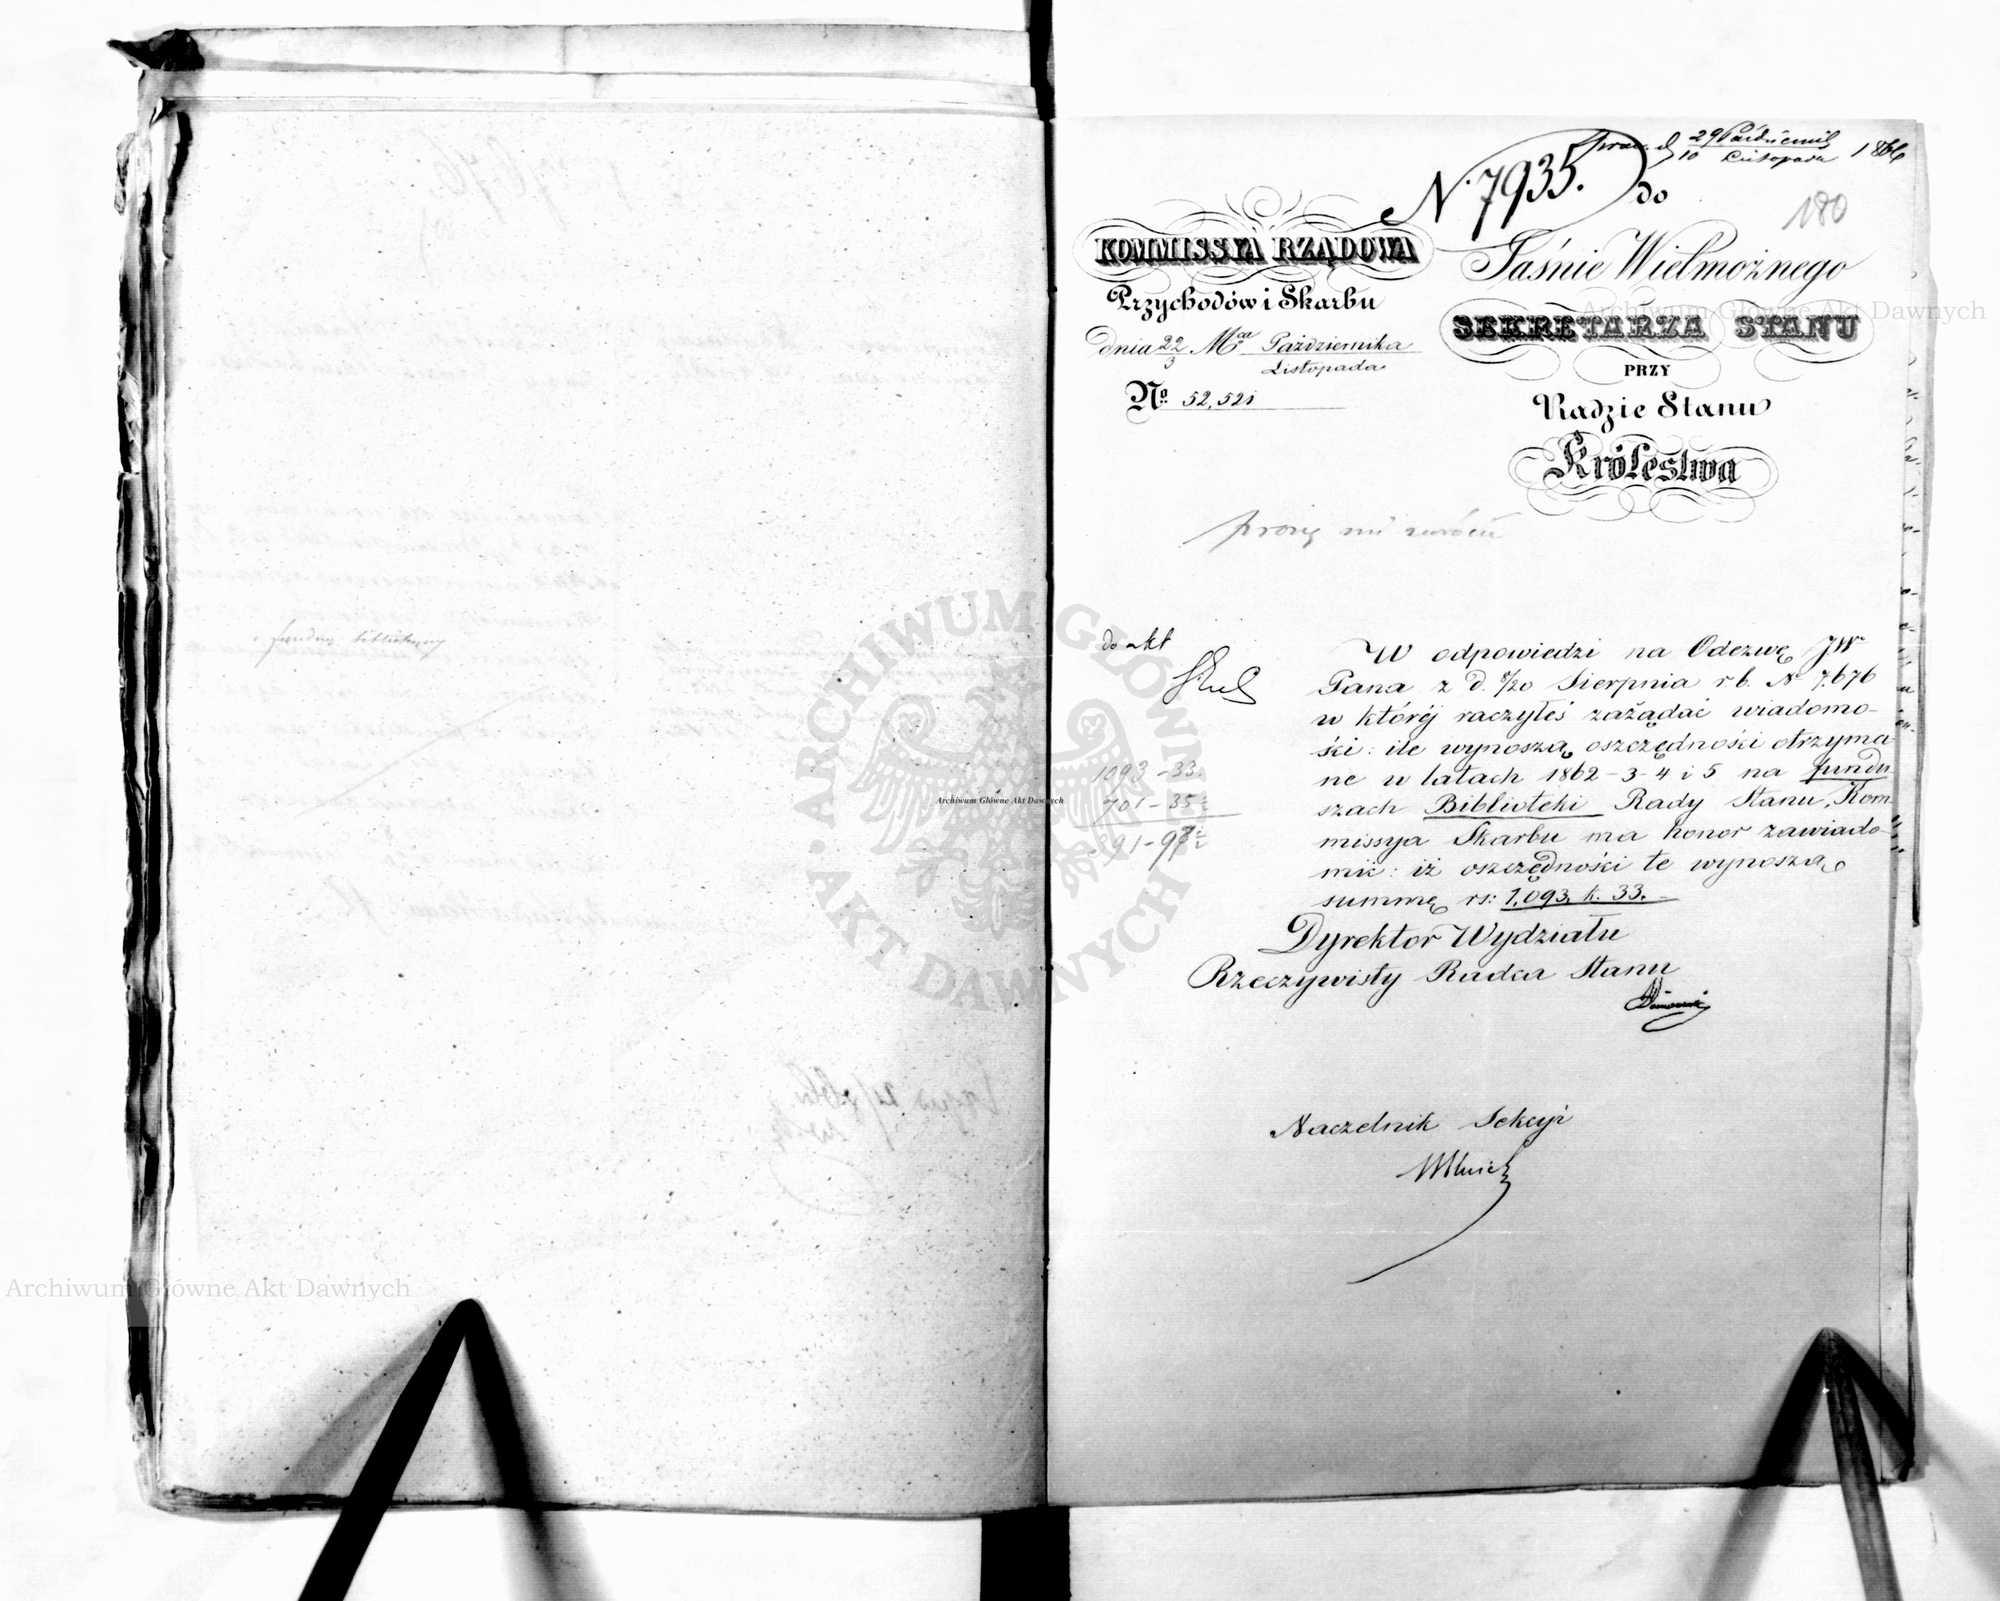 prez. d. 29 Październik / 10 Listopada 1866
N. 7935.
180
KOMMISSYA RZĄDOWA
Przychodów i Skarbu
dnia 22/3 Mca Października / Listopada
No. 52,521
do
Jaśnie Wielmożnego
SEKRETARZA STANU
PRZY
Radzie Stanu
Królestwa
proszę mi zwrócić
do akt
W odpowiedzi na Odezwę JW
Pana z d. 8/20 Sierpnia r.b. N 7.676
w której raczyłeś zażądać wiadomo-
ści: ile wynoszą oszczędności otrzyma
ne w latach 1862-3-4 i 5 na fundu
szach Biblioteki Rady Stanu, Kom
missya Skarbu ma honor zawiado-
mić: iż oszczędności te wynoszą
summę rs: 1,093. k. 33.
1093-33.
701-35½
391-97½
Dyrektor Wydziału
Rzeczywisty Radca Stanu
Naczelnik Sekcyi
z fundusz biblioteczny
ARCHIWUM GŁÓWNE AKT DAWNYCH
Archiwum Główne Akt Dawnych
Archiwum Główne Akt Dawnych
Archiwum Główne Akt Dawnych